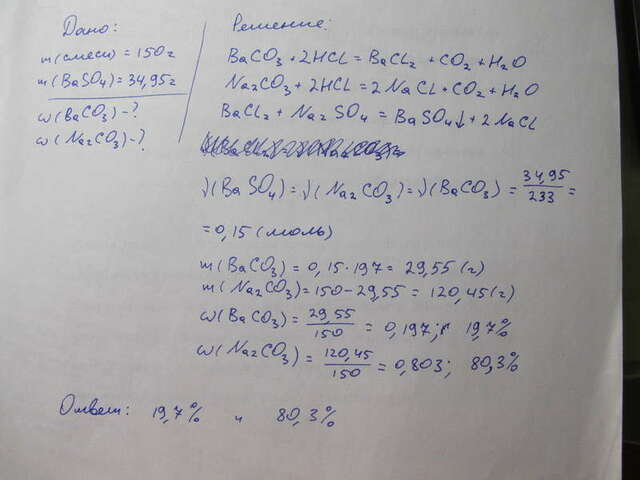 Дано:
m(смеси) = 150 г
m(BaSO₄) = 34,95 г
ω(BaCO₃) - ?
ω(Na₂CO₃) - ?
Решение:
BaCO₃ + 2HCL = BaCL₂ + CO₂ + H₂O
Na₂CO₃ + 2HCL = 2NaCL + CO₂ + H₂O
BaCL₂ + Na₂SO₄ = BaSO₄↓ + 2NaCL
√(BaSO₄) = √(Na₂CO₃) = √(BaCO₃) = 34,95/233 =
= 0,15 (моль)
m(BaCO₃) = 0,15·197 = 29,55 (г)
m(Na₂CO₃) = 150 - 29,55 = 120,45 (г)
ω(BaCO₃) = 29,55/150 = 0,197; 19,7%
ω(Na₂CO₃) = 120,45/150 = 0,803; 80,3%
Ответ: 19,7% и 80,3%